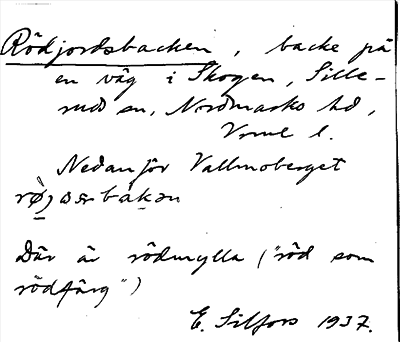 Rödjordsbacken, backe på
en väg i Skogen, Sille-
rud sn, Nordmarks hd,
Vrml l.
Nedanför Vallmoberget
Där är rödmylla ("röd som
rödfärg")
E. Silfors 1937.